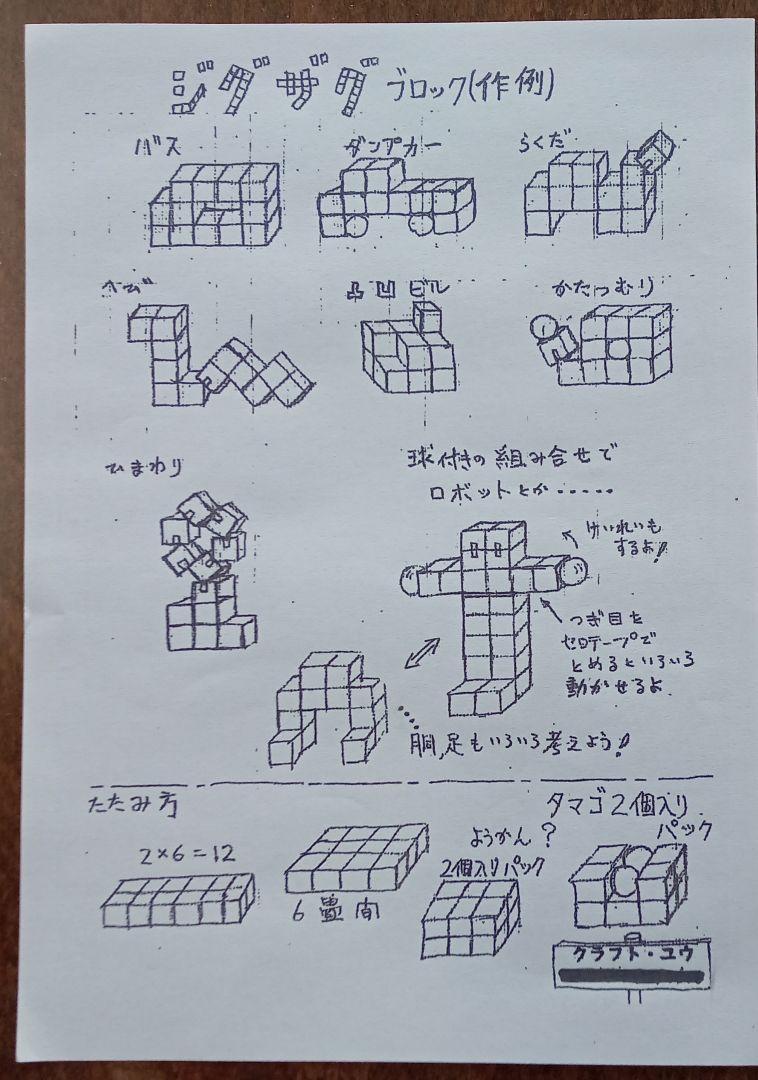 ジグザグブロック(作例)
バス
ダンプカー
らくだ
ヘビ
凸凹ビル
かたつむり
ひまわり
球付きの組み合せで
ロボットとか‥‥‥
けいれいも
するよ!
つぎ目を
セロテープで
とめるといろいろ
動かせるよ.
胴,足もいろいろ考えよう!
たたみ方
2×6=12
6畳間
ようかん?
2個入りパック
タマゴ2個入り
パック
クラフト・ユウ